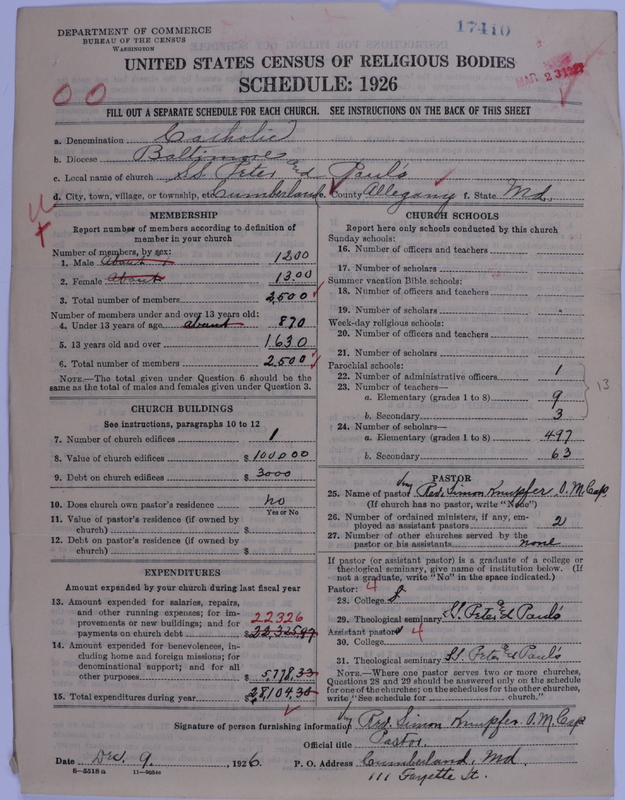 DEPARTMENT OF COMMERCE
BUREAU OF THE CENSUS
WASHINGTON
17410
UNITED STATES CENSUS OF RELIGIOUS BODIES
MAR 23 1927
SCHEDULE: 1926
00
FILL OUT A SEPARATE SCHEDULE FOR EACH CHURCH. SEE INSTRUCTIONS ON THE BACK OF THIS SHEET
a. Denomination Catholic
b. Diocese Baltimore
c. Local name of church SS. Peter and Paul's
d. City, town, village, or township, etc. Cumberland e. County Allegany f. State Md.
MEMBERSHIP
Report number of members according to definition of
member in your church
Number of members, by sex:
1. Male about 1200
2. Female about 1300
3. Total number of members 2,500
Number of members under and over 13 years old:
4. Under 13 years of age about 870
5. 13 years old and over 1630
6. Total number of members 2,500
NOTE.—The total given under Question 6 should be the
same as the total of males and females given under Question 3.
CHURCH BUILDINGS
See instructions, paragraphs 10 to 12
7. Number of church edifices 1
8. Value of church edifices $100000
9. Debt on church edifices $3000
10. Does church own pastor's residence no
Yes or No
11. Value of pastor's residence (if owned by
church) $
12. Debt on pastor's residence (if owned by
church) $
EXPENDITURES
Amount expended by your church during last fiscal year
13. Amount expended for salaries, repairs,
and other running expenses; for im-
provements or new buildings; and for 22326
payments on church debt $22,325.97
14. Amount expended for benevolences, in-
cluding home and foreign missions; for
denominational support; and for all
other purposes $5,778.33
15. Total expenditures during year $28104.30
CHURCH SCHOOLS
Report here only schools conducted by this church
Sunday schools:
16. Number of officers and teachers
17. Number of scholars
Summer vacation Bible schools:
18. Number of officers and teachers
19. Number of scholars
Week-day religious schools:
20. Number of officers and teachers
21. Number of scholars
Parochial schools:
22. Number of administrative officers 1
23. Number of teachers— 13
a. Elementary (grades 1 to 8) 9
b. Secondary 3
24. Number of scholars—
a. Elementary (grades 1 to 8) 497
b. Secondary 63
PASTOR
25. Name of pastor Rev. Simon Knupfer O.M.Cap
(If church has no pastor, write "None")
26. Number of ordained ministers, if any, em-
ployed as assistant pastors 2
27. Number of other churches served by the
pastor or his assistants none
If pastor (or assistant pastor) is a graduate of a college or
theological seminary, give name of institution below. (If
not a graduate, write "No" in the space indicated.)
Pastor: 4
28. College
29. Theological seminary SS. Peter and Paul's
Assistant pastor 4
30. College
31. Theological seminary SS. Peter and Paul's
NOTE.—Where one pastor serves two or more churches,
Questions 28 and 29 should be answered only on the schedule
for one of the churches; on the schedules for the other churches,
write "See schedule for church."
Signature of person furnishing information Rev. Simon Knupfer O.M.Cap
Official title Pastor.
Date Dec. 9, 1926. P. O. Address Cumberland, Md.
8—5518a
111 Fayette St.